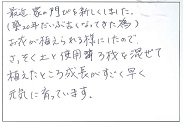 最近 家の門ぴを新しくしました。
(築20年だいぶ古くなってきた為)
お花が植えられる様にしたので、
さっそく土と使用済ろ材を混ぜて
植えたところ成長がすごく早く
元気に育っています。